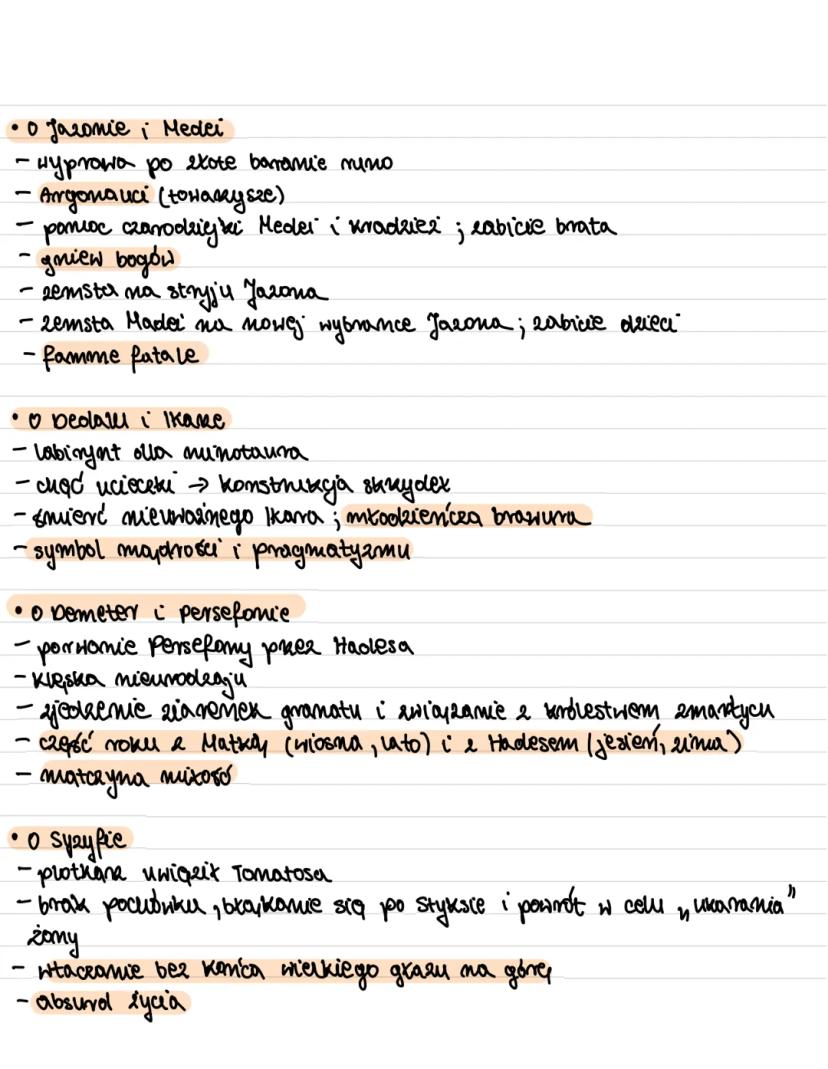 • O Jazonie i Medei
- wyprowa po złote baranie runo
- Argonauci (towarzysze)
- pomoc czarodziejki Medei i kradzież ; zabicie brata
- gniew bogów
- zemsta na stryju Jazona
- zemsta Madei na nowej wybrance Jazona ; zabicie dzieci
- famme fatale
• O Dedalu i Ikarze
- labirynt dla minotaura
- chęć ucieczki → konstrukcja skrzydeł
- śmierć nieuważnego Ikara ; młodzieńcza brawura
- symbol mądrości i pragmatyzmu
• O Demeter i persefonie
- porwanie Persefony przez Hadesa
- klęska nieurodzaju
- zjedzenie ziarenek granatu i związanie z królestwem zmarłych
- część roku z Matką (wiosna, lato) i z Hadesem (jesień, zima)
- matczyna miłość
• O Syzyfie
- plotkarz uwięził Tanatosa
- brak pochówku, błąkanie się po Styksie i powrót w celu „ukarania”
żony
- wtaczanie bez końca wielkiego głazu na górę
- absurd życia